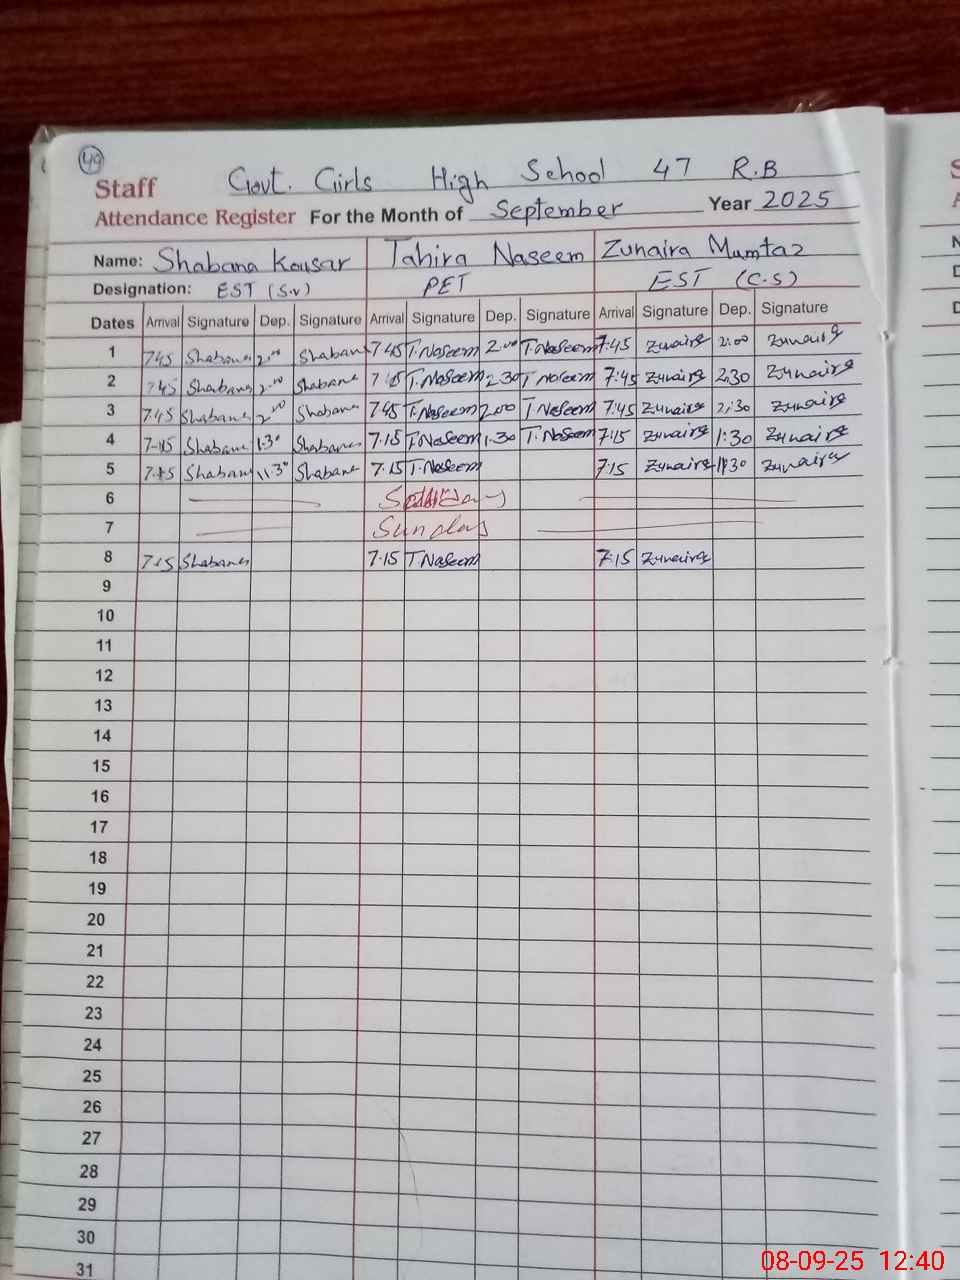 49
Staff Govt. Girls High School 47 R.B
Attendance Register For the Month of September Year 2025
Name: Shabana Kousar Tahira Naseem Zunaira Mumtaz
Designation: EST (S.V) PET EST (C.S)
Dates Arrival Signature Dep. Signature Arrival Signature Dep. Signature Arrival Signature Dep. Signature
1 7.45 Shabana 2.00 Shabana 7.45 T.Naseem 2.00 T.Naseem 7:45 Zunaira 2:00 Zunaira
2 7.45 Shabana 2.00 Shabana 7.45 T.Naseem 2.30 T.Naseem 7:45 Zunaira 2:30 Zunaira
3 7.45 Shabana 2.00 Shabana 7.45 T.Naseem 2.00 T.Naseem 7:45 Zunaira 2:30 Zunaira
4 7.15 Shabana 1.30 Shabana 7.15 T.Naseem 1.30 T.Naseem 7:15 Zunaira 1:30 Zunaira
5 7.15 Shabana 11.30 Shabana 7.15 T.Naseem 7:15 Zunaira 11:30 Zunaira
6 Saturday
7 Sunday
8 7.15 Shabana 7.15 T.Naseem 7:15 Zunaira
9
10
11
12
13
14
15
16
17
18
19
20
21
22
23
24
25
26
27
28
29
30
31
08-09-25 12:40